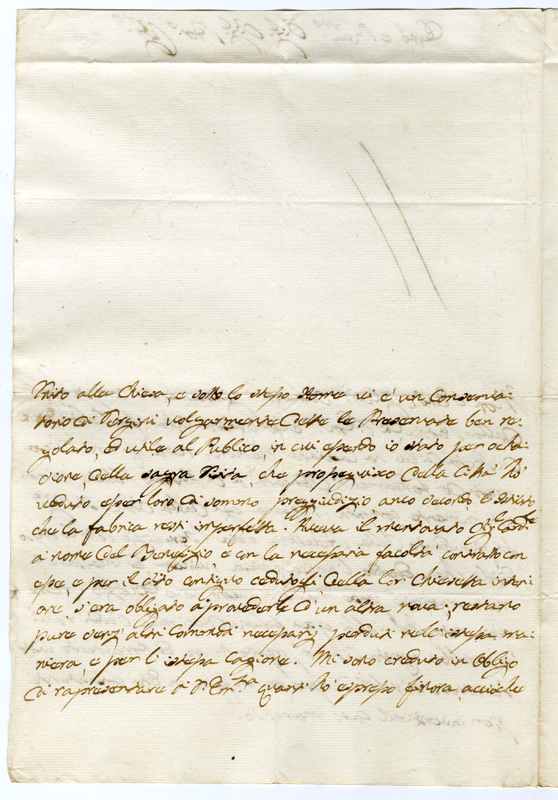 Unito alla Chiesa, e sotto lo stesso Nome vi è un Conserva-
torio di Vergini volgarmente dette le Preservate ben re-
golato, ed utile al Publico, in cui essendo io stato per occa-
sione della sacra Visita, che proseguisco della Città hò
veduto esser loro di sommo preggiudizio anco secondo lo
che la fabrica resti imperfetta. Aveva il mentovato
a nome del e con la necessaria facoltà contratto con
esse e per il sito cedutoli della lor Chiesetta interi-
ore s'era obligato à provederle d'un altra nova; restano
pure senz'altri Comodi necessarij perduti nell'istessa ma-
niera e per l'istessa Cagione. Mi sono creduto in obligo
di rappresentare à V. Em.za quanto hò espresso finora, acciòche